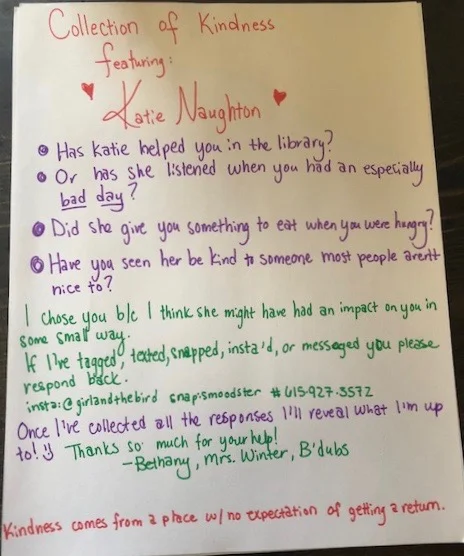 Collection of Kindness
featuring:
Katie Naughton
Has Katie helped you in the library?
Or has she listened when you had an especially
bad day?
Did she give you something to eat when you were hungry?
Have you seen her be kind to someone most people aren't
nice to?
I chose you b/c I think she might have had an impact on you in
some small way.
If I've tagged, texted, snapped, insta'd, or messaged you please
respond back.
insta:@girlandthebird snap:smoodster #615-927-3572
Once I've collected all the responses I'll reveal what I'm up
to! Thanks so much for your help!
-Bethany, Mrs. Winter, B'dubs
Kindness comes from a place w/ no expectation of getting a return.